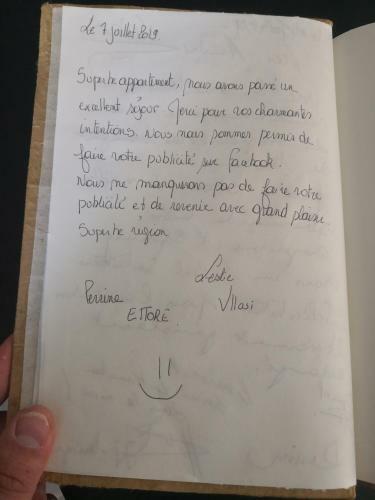 Le 7 juillet 2019
Superbe appartement, nous avons passé un
excellent séjour. Merci pour vos charmantes
intentions. Nous nous sommes permis de
faire votre publicité sur facebook.
Nous ne manquerons pas de faire votre
publicité et de revenir avec grand plaisir.
Superbe région
Leslie
Perrine
Ullasi
ETTORE.